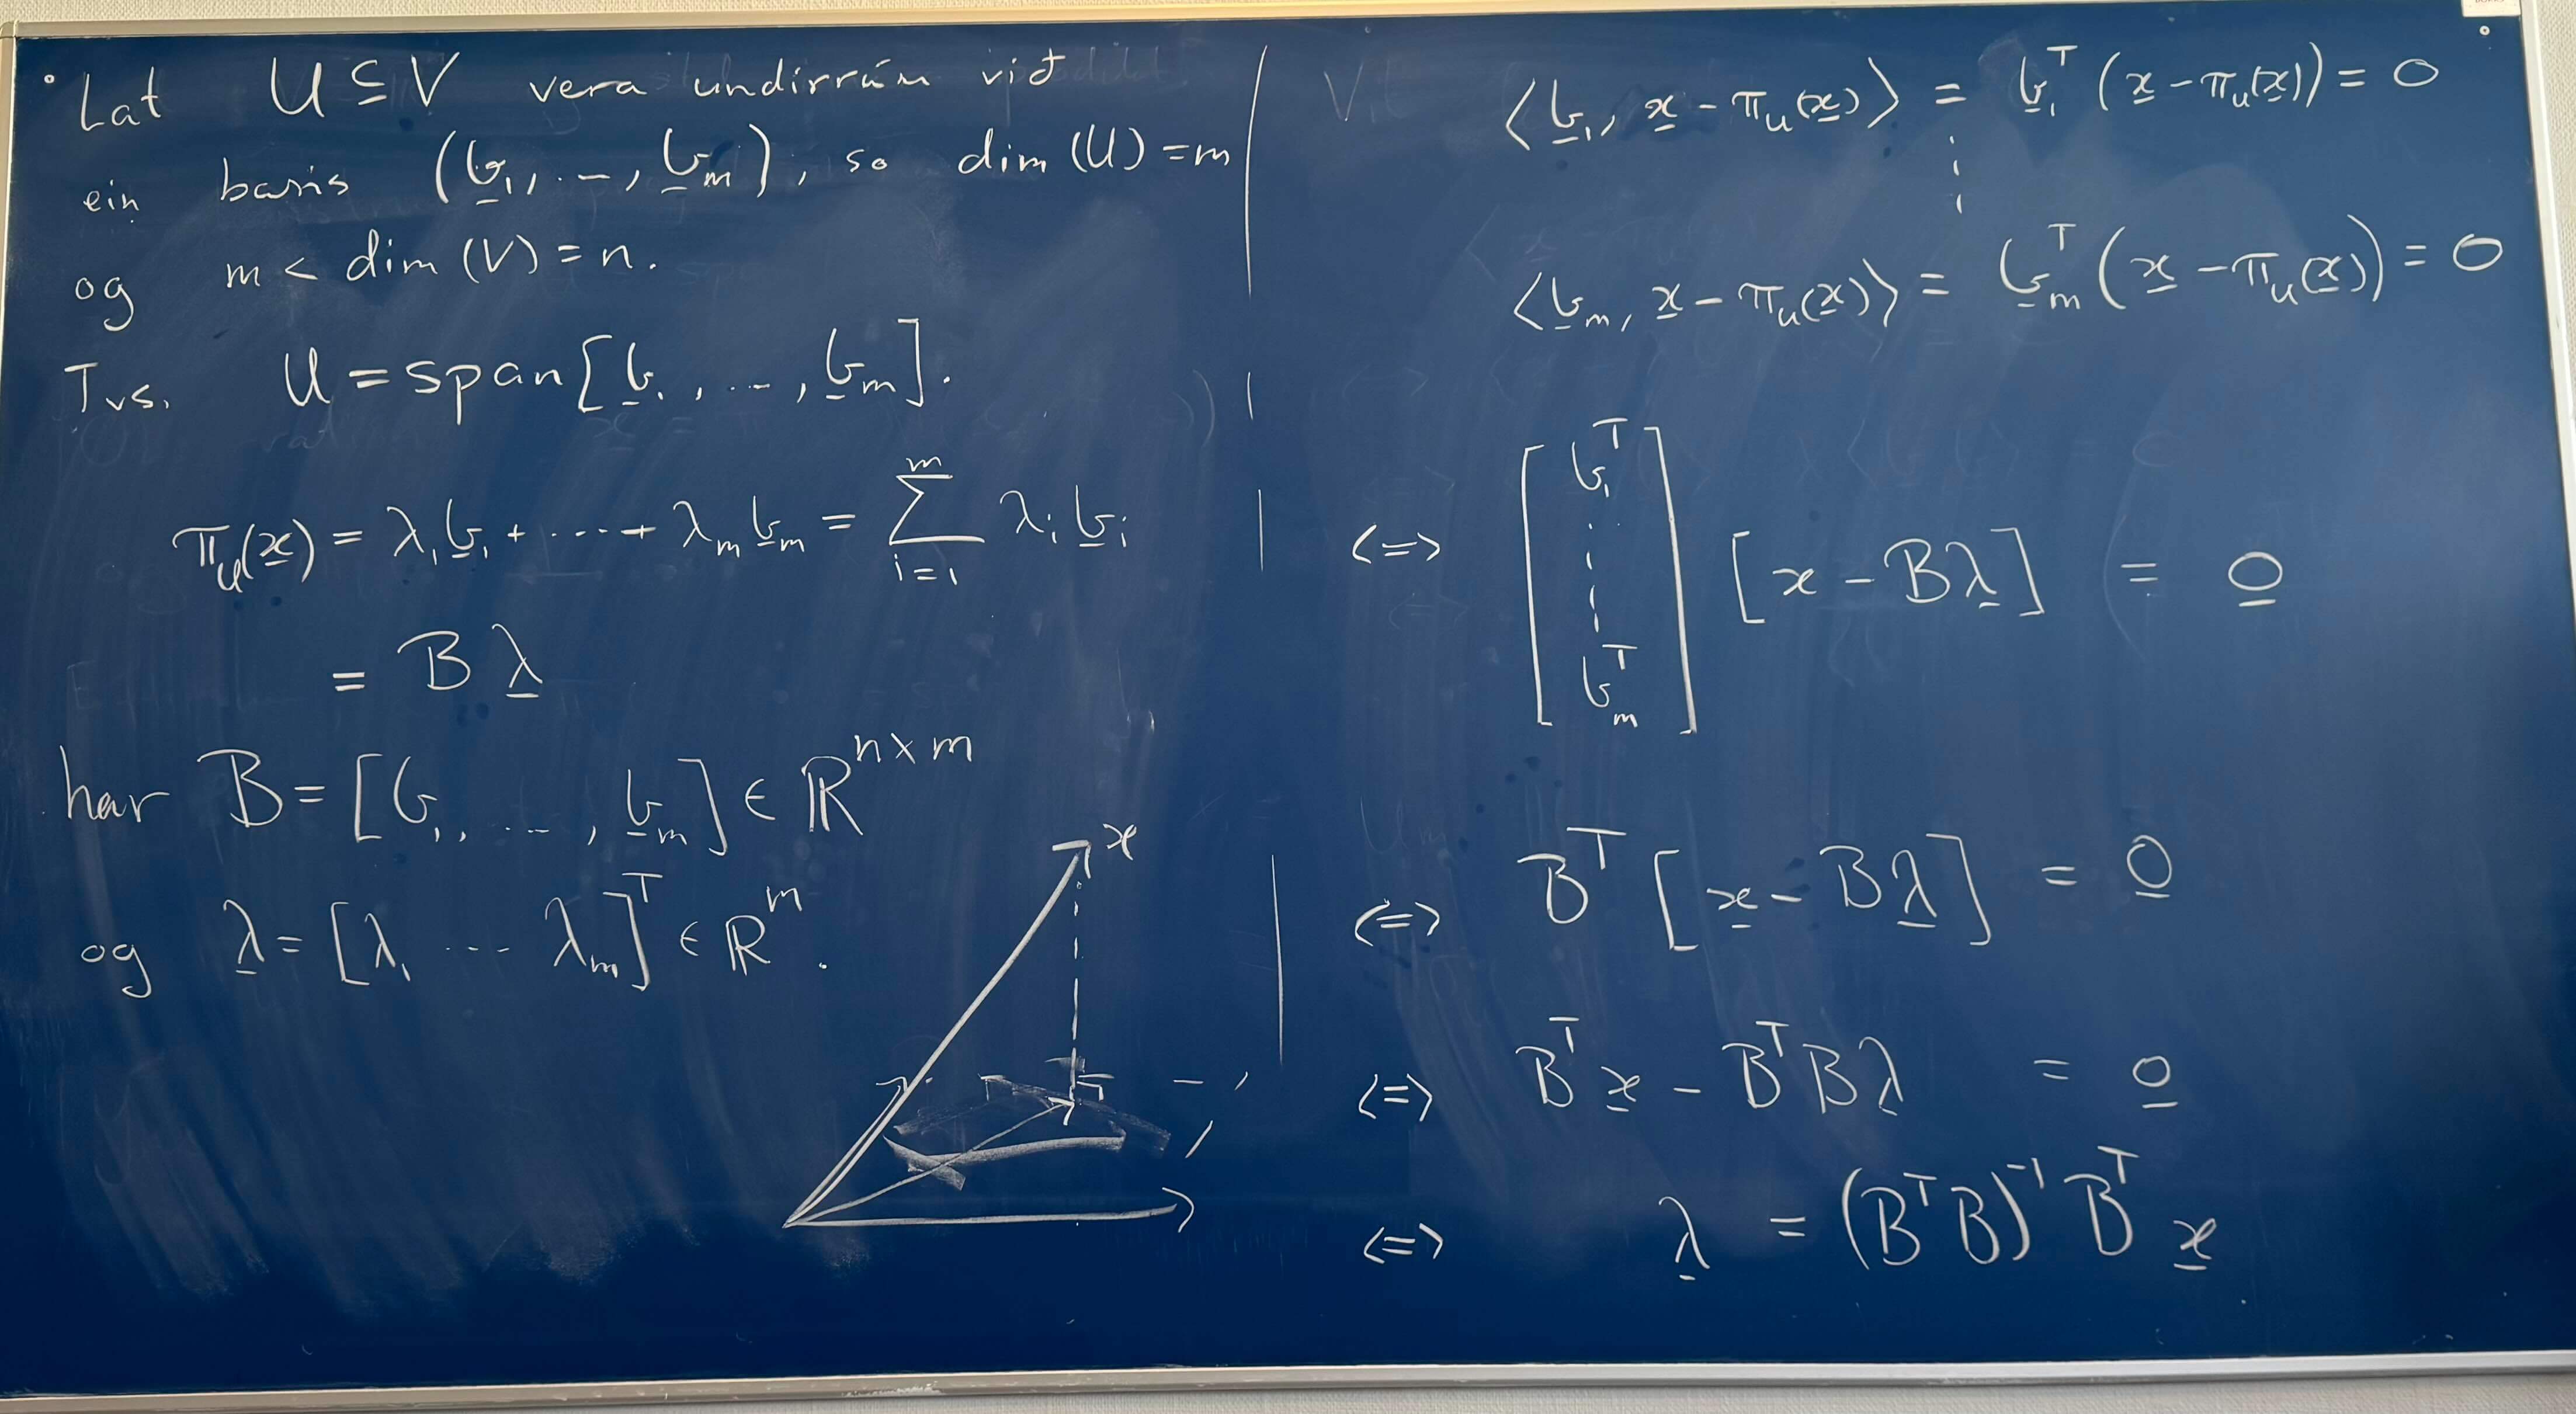 Lat U ⊆ V vera undirrúm við
ein basis (b₁, ..., bₘ), so dim (U) = m
og m < dim (V) = n.
Tvs. U = span[b₁, ..., bₘ].
π_U(x) = λ₁b₁ + ... + λₘbₘ = ∑_{i=1}^{m} λᵢbᵢ
= Bλ
har B = [b₁, ..., bₘ] ∈ ℝ^{n×m}
og λ = [λ₁ ... λₘ]ᵀ ∈ ℝᵐ.
x
⟨b₁, x − π_U(x)⟩ = b₁ᵀ(x − π_U(x)) = 0
⋮
⟨bₘ, x − π_U(x)⟩ = bₘᵀ(x − π_U(x)) = 0
⟺ [b₁ᵀ ⋮ bₘᵀ] [x − Bλ] = 0
⟺ Bᵀ[x − Bλ] = 0
⟺ Bᵀx − BᵀBλ = 0
⟺ λ = (BᵀB)⁻¹Bᵀx